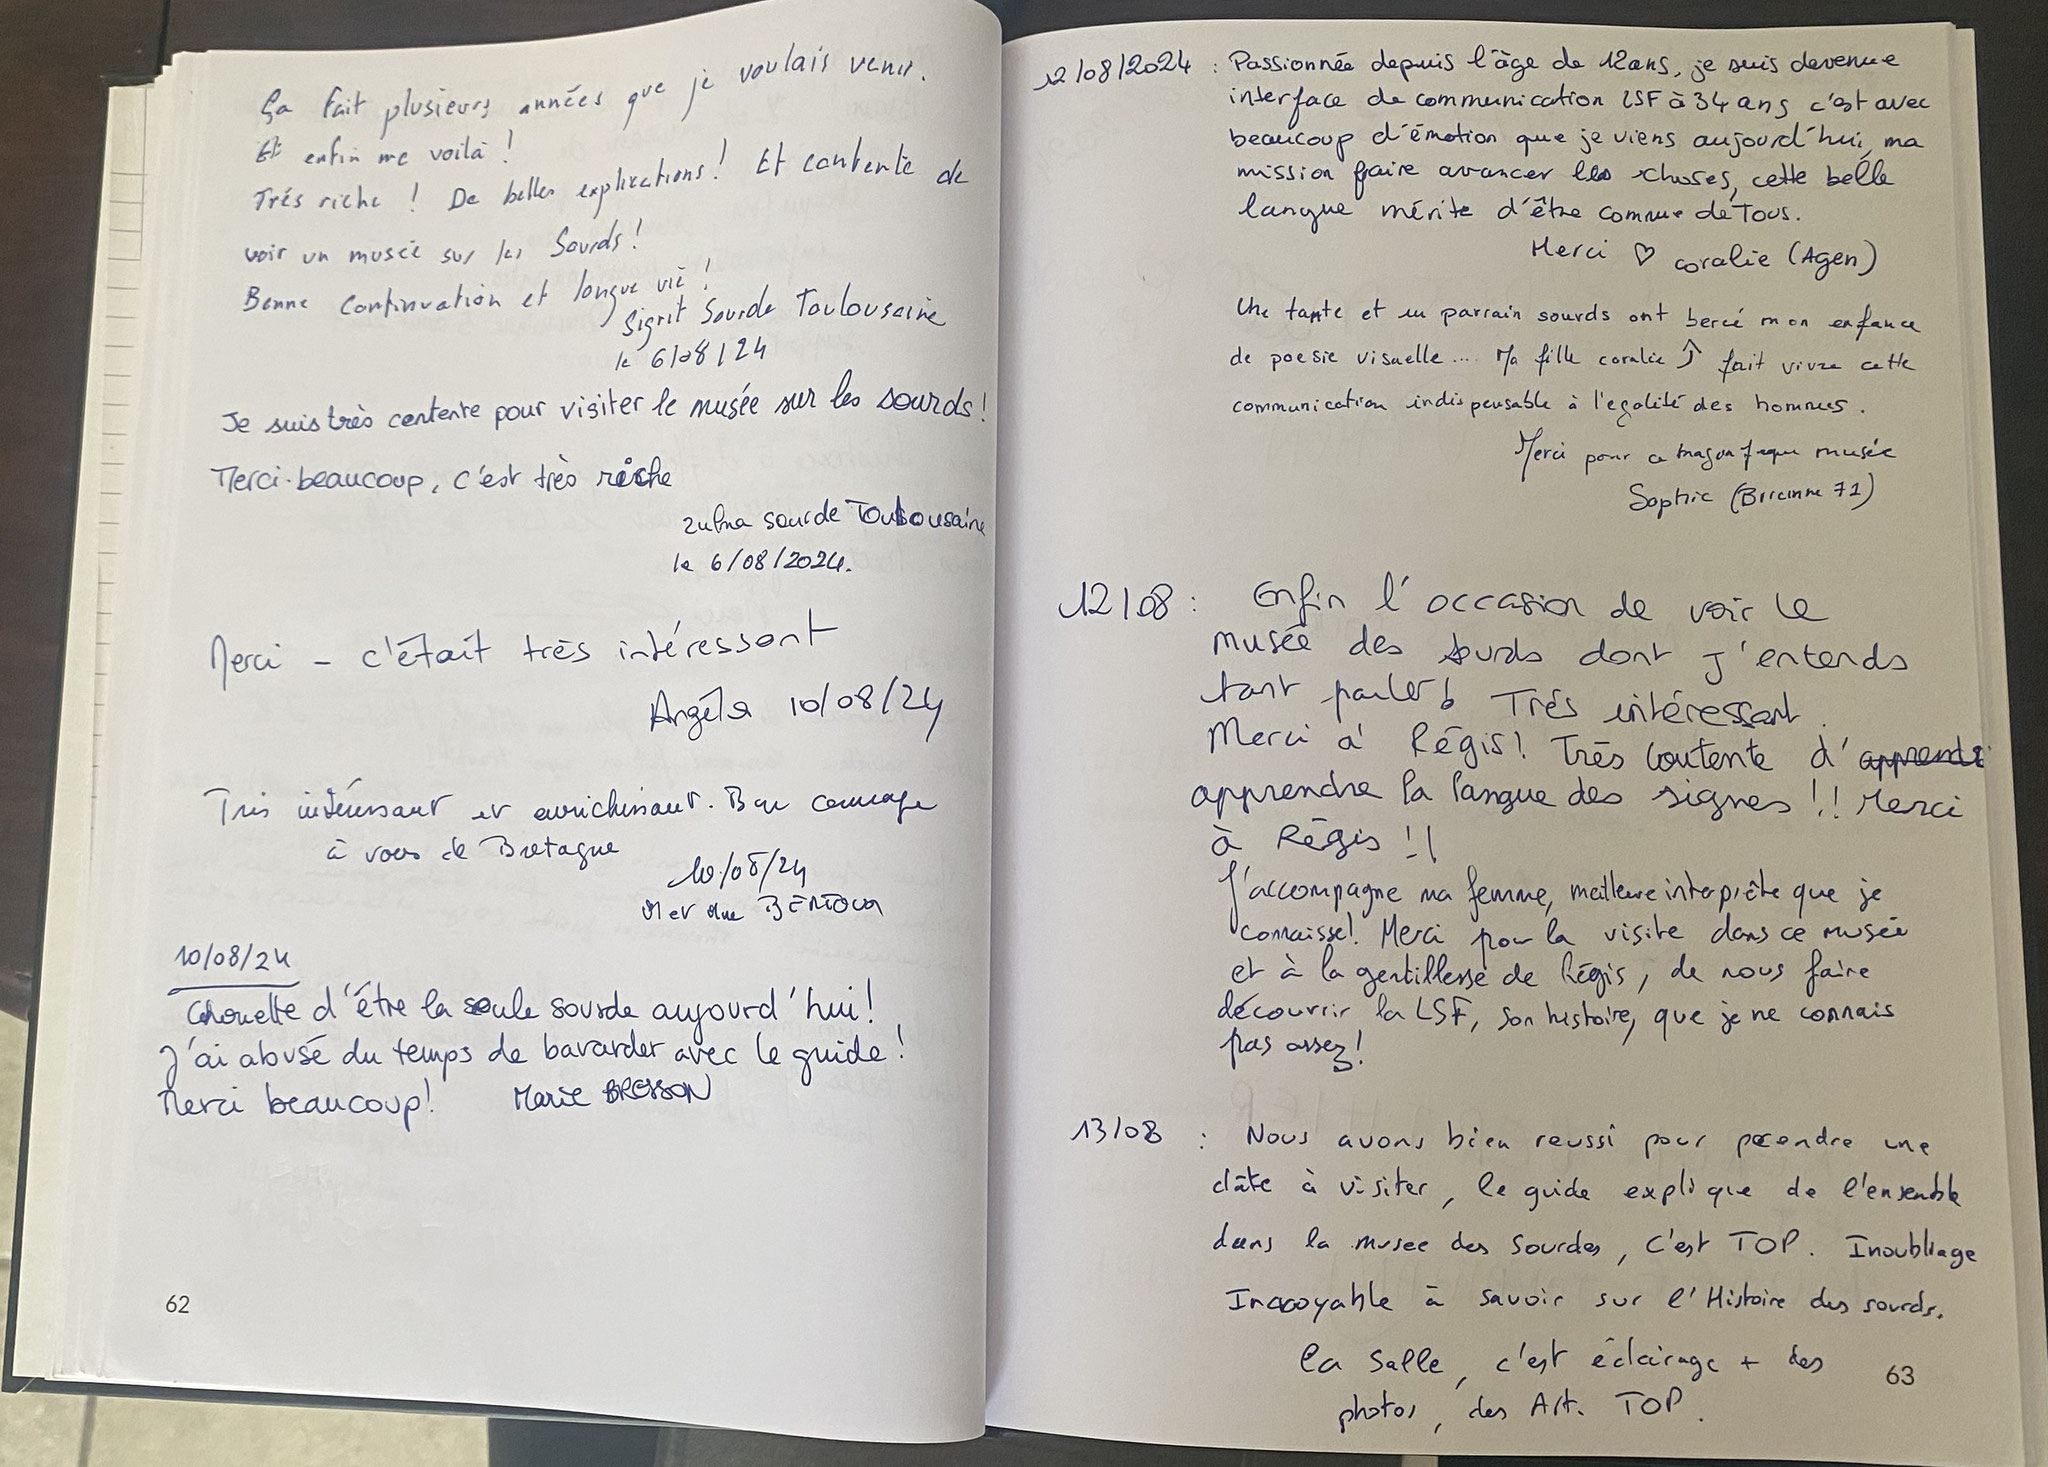 Ça fait plusieurs années que je voulais venir.
Et enfin me voilà !
Très riche ! De belles explications ! Et contente de
voir un musée sur les Sourds !
Bonne continuation et longue vie !
Sigrit Sourde Toulousaine
le 6/08/24
Je suis très contente pour visiter le musée sur les sourds !
Merci beaucoup, c'est très riche
sourde Toulousaine
le 6/08/2024.
Merci - c'était très intéressant
Angéla 10/08/24
Très intéressant et enrichissant. Bon courage
à vous de Bretagne
10/08/24
M et Mme
10/08/24
Chouette d'être la seule sourde aujourd'hui !
J'ai abusé du temps de bavarder avec le guide !
Merci beaucoup! Marie BRESSON
62
12/08/2024 : Passionnée depuis l'âge de 12ans, je suis devenue
interface de communication LSF à 34 ans c'est avec
beaucoup d'émotion que je viens aujourd'hui, ma
mission faire avancer les choses, cette belle
langue mérite d'être connue de Tous.
Merci ♡ coralie (Agen)
Une tante et un parrain sourds ont bercé mon enfance
de poesie visuelle... Ma fille coralie ↑ fait vivre cette
communication indispensable à l'egalité des hommes.
Merci pour ce magnifique musée
Sophie (71)
12/08 : Enfin l'occasion de voir le
musée des sourds dont j'entends
tant parler ! Très intéressant.
Merci à Régis! Très contente d' apprendre
apprendre la langue des signes !! Merci
à Régis !!
J'accompagne ma femme, meilleure interprête que je
connaisse! Merci pour la visite dans ce musée
et à la gentillesse de Régis, de nous faire
découvrir la LSF, son histoire, que je ne connais
pas assez!
13/08 : Nous avons bien reussi pour prendre une
dâte à visiter, le guide explique de l'ensemble
dans la musee des Sourdes, C'est TOP. Inoubliage
Incroyable à savoir sur l'Histoire des sourds.
La Salle, c'est éclairage + des
photos, des Art. TOP.
63